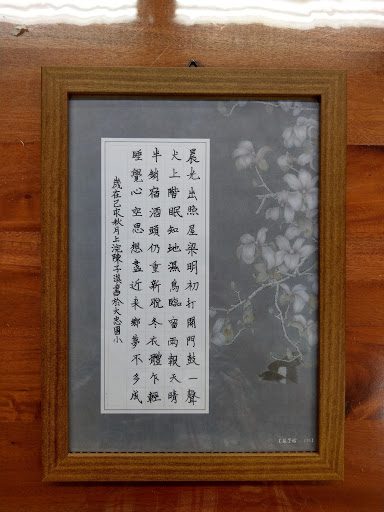 晨光出照屋梁明初打開門鼓一聲
犬上階眠知地濕鳥臨窗雨報天晴
半銷宿酒頭仍重新脫冬衣體乍輕
睡覺心空思想盡近來鄉夢不多成
歲在己亥秋月上浣陳子淇書於大忠國小